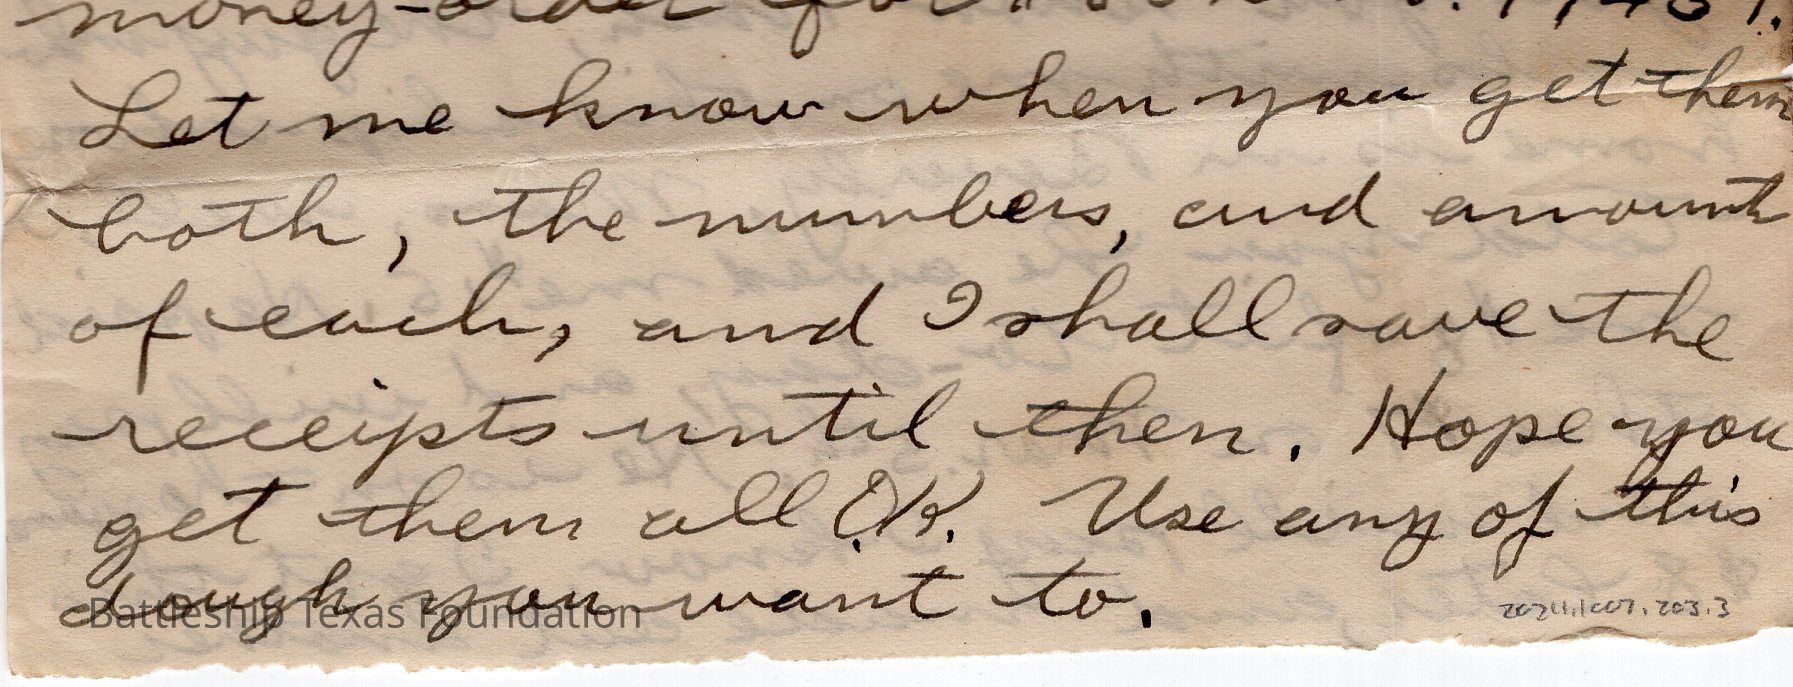 money-order for
Let me know when you get them
both, the numbers, and amount
of each, and I shall save the
receipts until then. Hope you
get them all O.K. Use any of this
dough you want to.
Battleship Texas Foundation
20211.1007.203.3